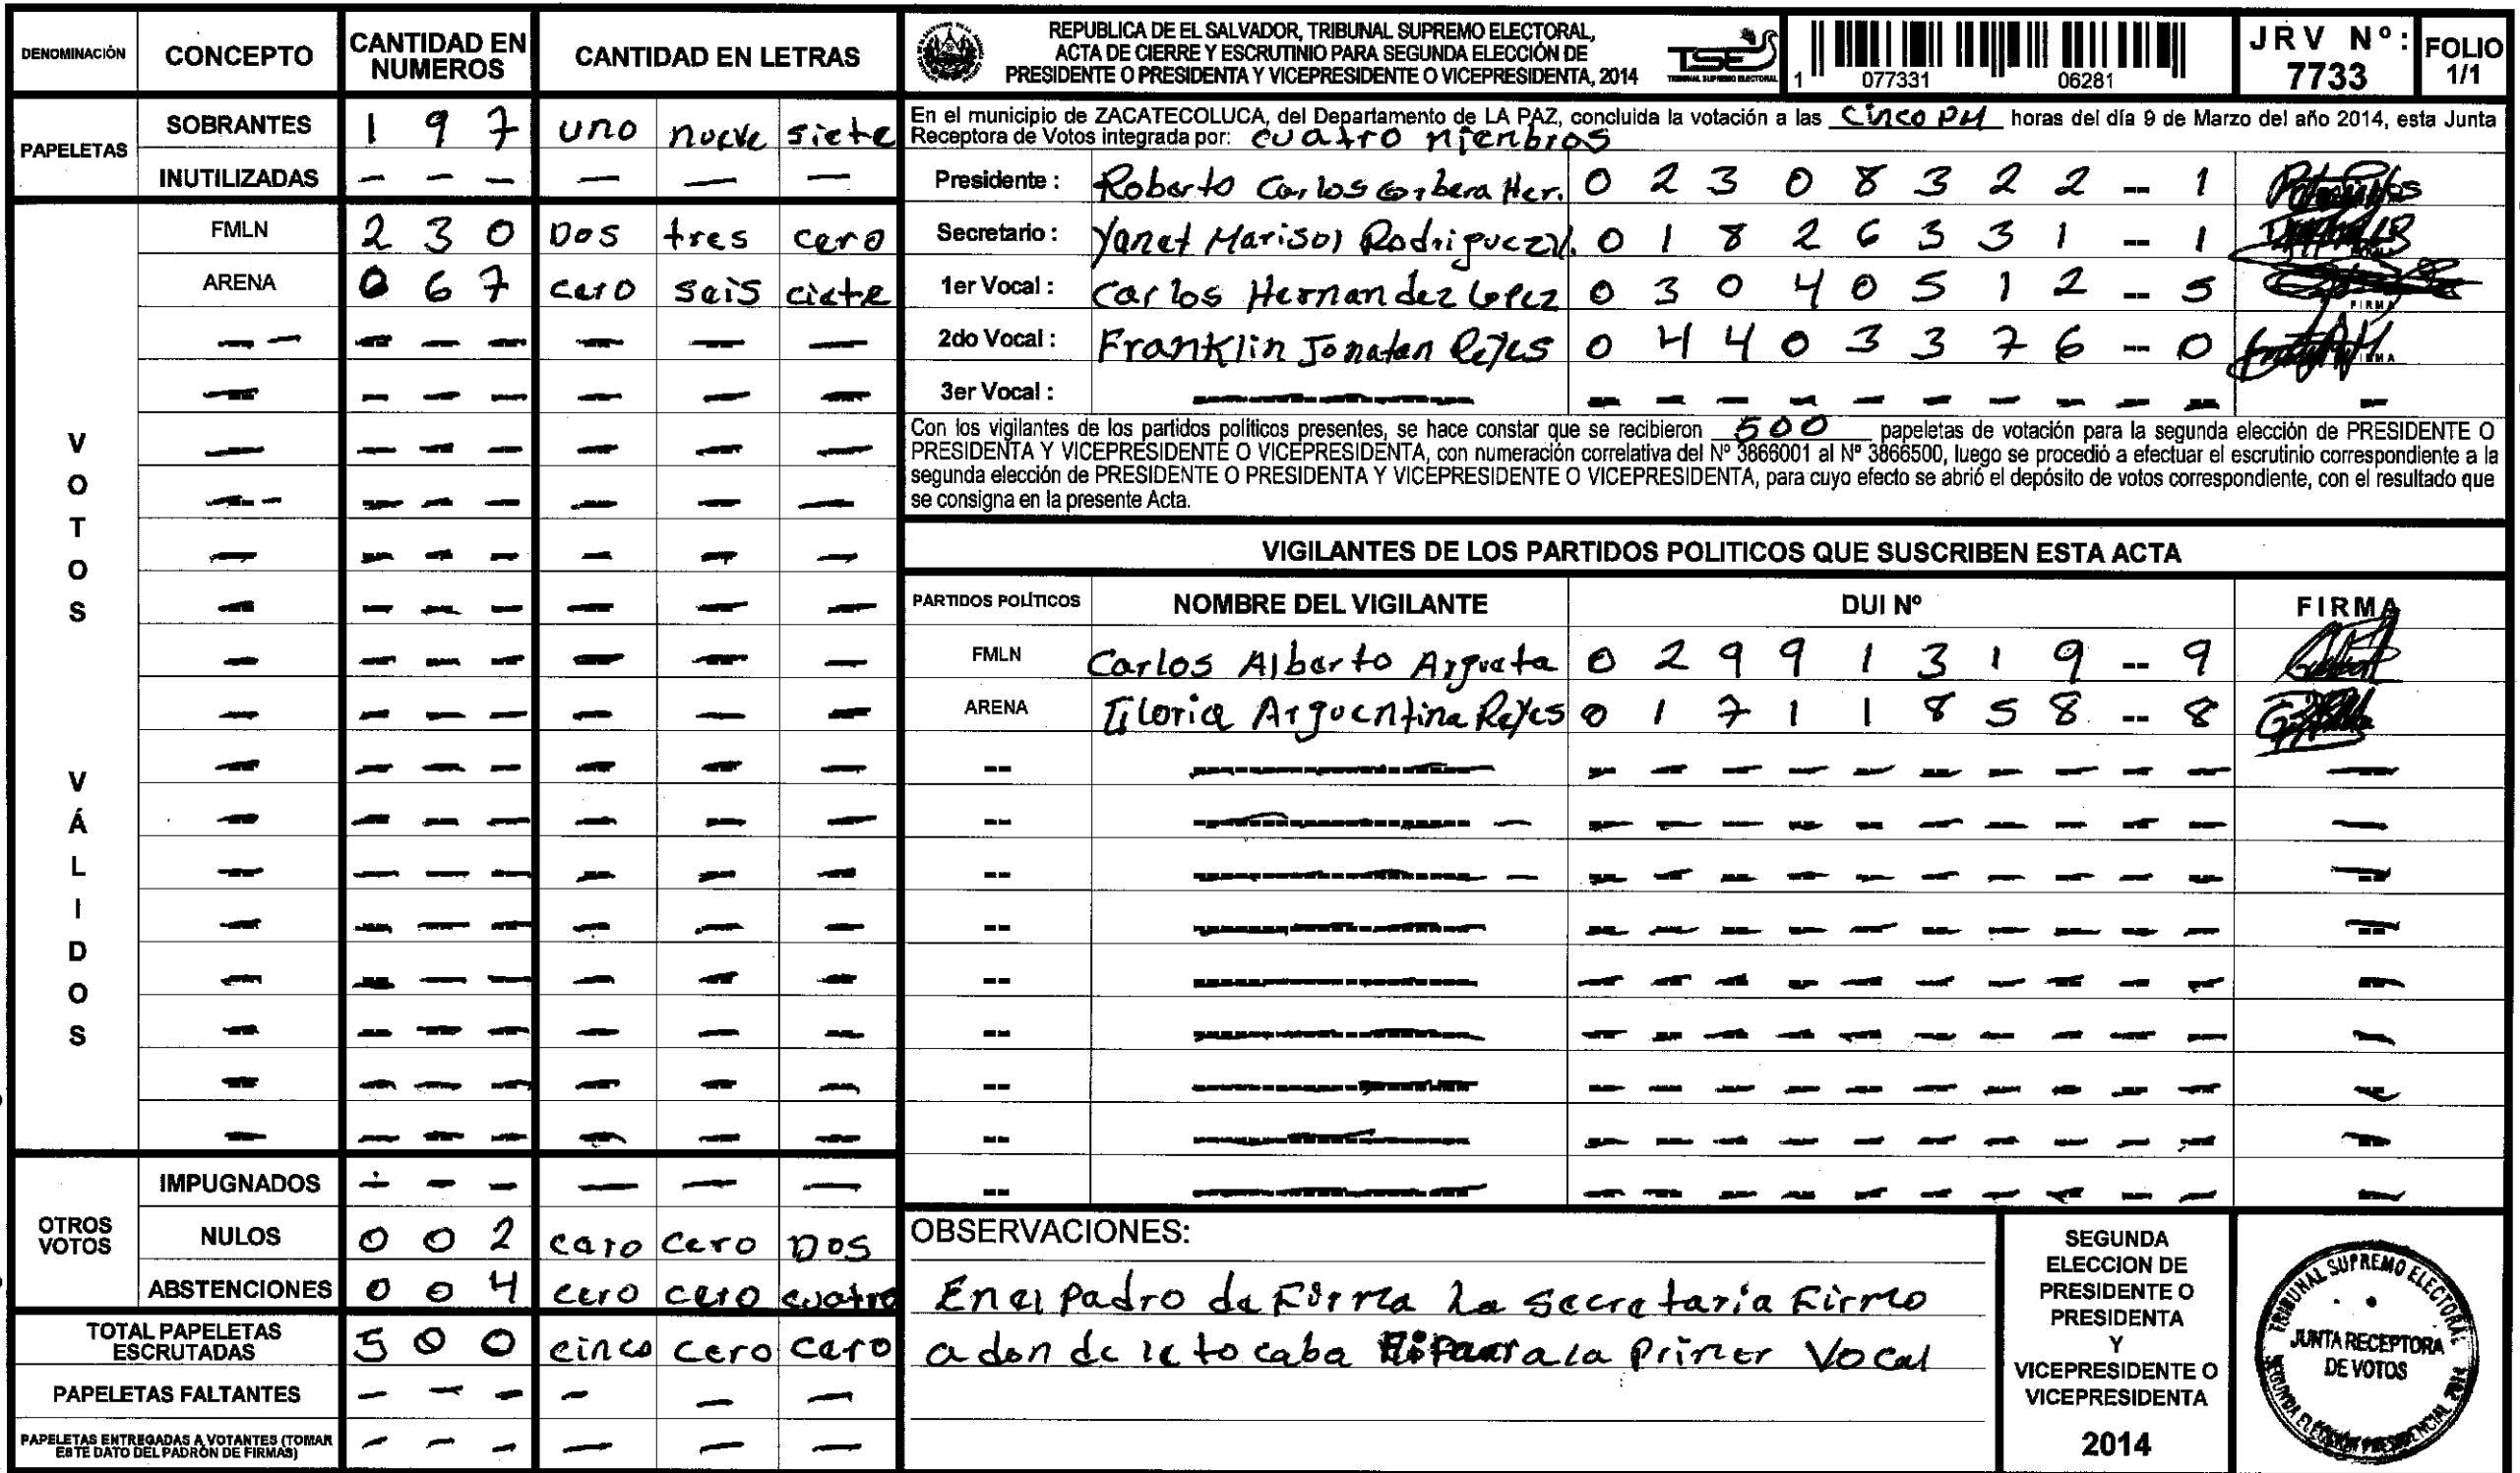 DENOMINACIÓN CONCEPTO CANTIDAD EN NUMEROS CANTIDAD EN LETRAS
PAPELETAS
SOBRANTES 1 9 7 uno nueve siete
INUTILIZADAS - - - - - -
VOTOS VÁLIDOS
FMLN 2 3 0 Dos tres cero
ARENA 0 6 7 cero seis ciete
OTROS VOTOS
IMPUGNADOS - - - - - -
NULOS 0 0 2 cero cero Dos
ABSTENCIONES 0 0 4 cero cero cuatro
TOTAL PAPELETAS ESCRUTADAS 5 0 0 cinco cero cero
PAPELETAS FALTANTES - - - - - -
PAPELETAS ENTREGADAS A VOTANTES (TOMAR ESTE DATO DEL PADRÓN DE FIRMAS) - - - - - -
REPUBLICA DE EL SALVADOR, TRIBUNAL SUPREMO ELECTORAL,
ACTA DE CIERRE Y ESCRUTINIO PARA SEGUNDA ELECCIÓN DE
PRESIDENTE O PRESIDENTA Y VICEPRESIDENTE O VICEPRESIDENTA, 2014
TSE
TRIBUNAL SUPREMO ELECTORAL
1 077331 06281
JRV Nº: 7733
FOLIO 1/1
En el municipio de ZACATECOLUCA, del Departamento de LA PAZ, concluida la votación a las Cinco PM horas del día 9 de Marzo del año 2014, esta Junta
Receptora de Votos integrada por: cuatro mienbros
Presidente : Roberto Carlos Corbera Her. 0 2 3 0 8 3 2 2 -- 1
Secretario : Yanet Marisol Rodriguez 0 1 8 2 6 3 3 1 -- 1
1er Vocal : Carlos Hernandez Lopez 0 3 0 4 0 5 1 2 -- 5 FIRMA
2do Vocal : Franklin Jonatan Reyes 0 4 4 0 3 3 7 6 -- 0 FIRMA
3er Vocal :
Con los vigilantes de los partidos politicos presentes, se hace constar que se recibieron 500 papeletas de votación para la segunda elección de PRESIDENTE O
PRESIDENTA Y VICEPRESIDENTE O VICEPRESIDENTA, con numeración correlativa del Nº 3866001 al Nº 3866500, luego se procedió a efectuar el escrutinio correspondiente a la
segunda elección de PRESIDENTE O PRESIDENTA Y VICEPRESIDENTE O VICEPRESIDENTA, para cuyo efecto se abrió el depósito de votos correspondiente, con el resultado que
se consigna en la presente Acta.
VIGILANTES DE LOS PARTIDOS POLITICOS QUE SUSCRIBEN ESTA ACTA
PARTIDOS POLÍTICOS NOMBRE DEL VIGILANTE DUI Nº FIRMA
FMLN Carlos Alberto Argueta 0 2 9 9 1 3 1 9 -- 9
ARENA Gloria Arguentina Reyes 0 1 7 1 1 8 5 8 -- 8
OBSERVACIONES:
En el padro de Firma La secretaria Firmo
a don de le tocaba a la Primer Vocal
SEGUNDA
ELECCION DE
PRESIDENTE O
PRESIDENTA
Y
VICEPRESIDENTE O
VICEPRESIDENTA
2014
TRIBUNAL SUPREMO ELECTORAL
JUNTA RECEPTORA
DE VOTOS
SEGUNDA ELECCIÓN PRESIDENCIAL 2014